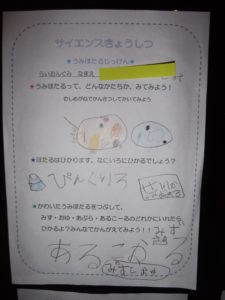 サイエンスきょうしつ
★うみほたるじっけん★
らいおんぐみ なまえ み
★うみほたるって、どんなかたちか、みてみよう！
むしめがねでかんさつしてかいてみよう
★ほたるはひかります。なにいろにひかるでしょう？
ぴんくいろ
★かわいたうみほたるをつぶして、
みず・おゆ・あぶら・あるこーるのどれかにいれたら、
ひかるよ？みんなでかんがえてみよう！！
みず